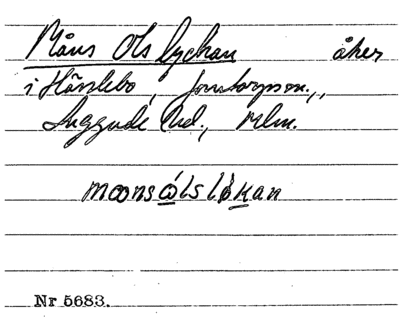 Måns Ols lyckan åker
i Hässlebo, Jonstorps sn.,
Luggude hd., Mlm.
moonsólslökan
Nr 5683.